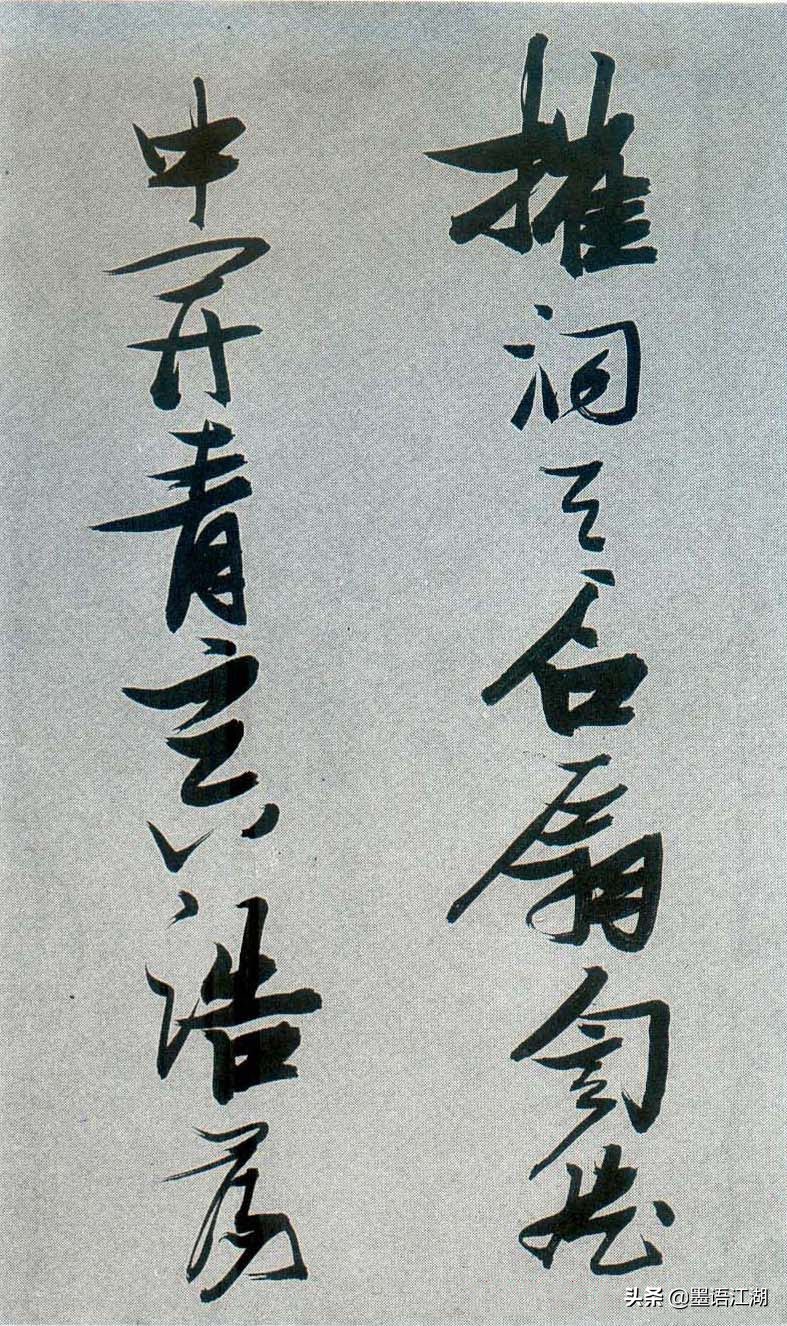 摧洞天石扇訇然
中開青冥浩蕩
头条 @墨语江湖